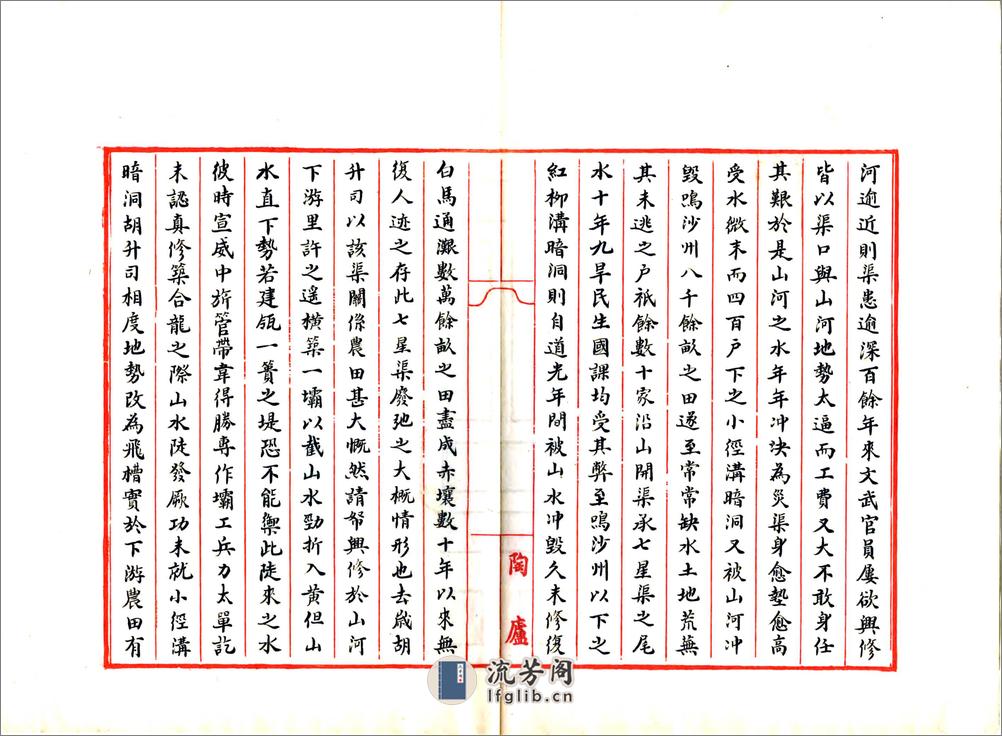 河逾近則渠患逾深百餘年來文武官員屢欲興修
皆以渠口與山河地勢太逼而工費又大不敢身任
其艱於是山河之水年年冲決為災渠身愈墊愈高
受水微末而四百戶下之小徑溝暗洞又被山河冲
毀鳴沙州八千餘畝之田遂至常常缺水土地荒蕪
其未逃之戶祇餘數十家沿山開渠承七星渠之尾
水十年九旱民生國課均受其弊至鳴沙州以下之
紅柳溝暗洞則自道光年間被山水冲毀久未修復
陶廬
白馬通灘數萬餘畝之田盡成赤壤數十年以來無
復人迹之存此七星渠廢弛之大概情形也去歲胡
升司以該渠關係農田甚大慨然請帑興修於山河
下游里許之遥橫築一壩以截山水勁折入黄但山
水直下勢若建瓴一簣之堤恐不能禦此陡來之水
彼時宣威中旂管帶韋得勝專作壩工兵力太單訖
未認真修築合龍之際山水陡發厥功未就小徑溝
暗洞胡升司相度地勢改為飛槽實於下游農田有
流芳阁
lfglib.cn